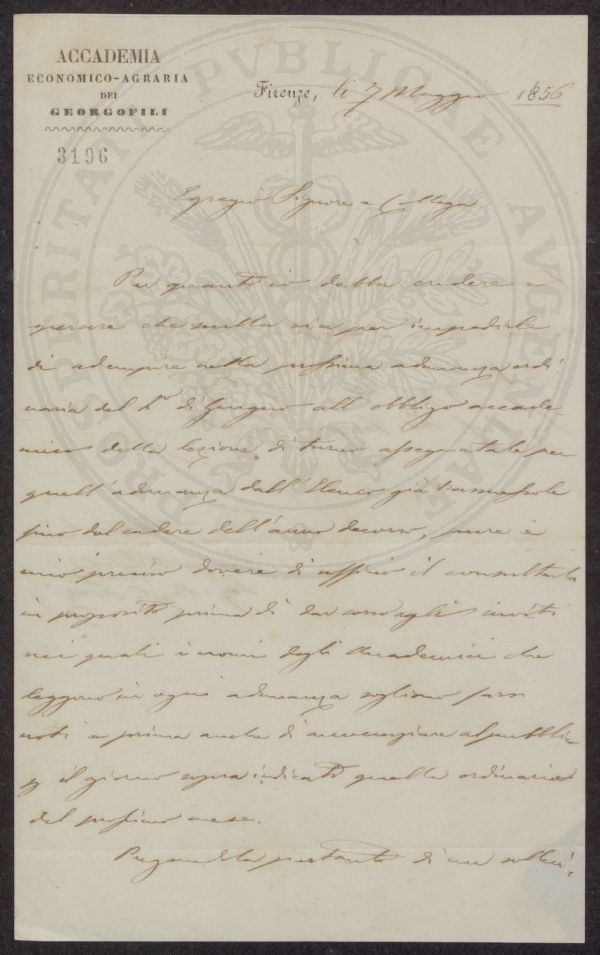 ACCADEMIA
ECONOMICO-AGRARIA
DEI
GEORGOFILI
3196
PROSPERITATI PVBLICAE AVGENDAE
Firenze, li 7 Maggio 1856
Egregio Signore e Collega
Per quanto io debba credere e
sperare che nulla sia per impedirle
di adempire nella prossima adunanza ordi
naria del 1º di Giugno all'obbligo accade-
mico della lezione di turno assegnatale per
quell'adunanza dall'Elenco già trasmessole
fino dal cadere dell'anno decorso, pure è
mio preciso dovere di uffizio il consultarla
in proposito prima di dar corso agli inviti
nei quali i nomi degli Accademici che
leggono in ogni adunanza sogliono farsi
noti e prima anche di annunziare al pubblico
per il giorno sopra indicato quella ordinaria
del prossimo mese.
Pregandola pertanto di un solleci-